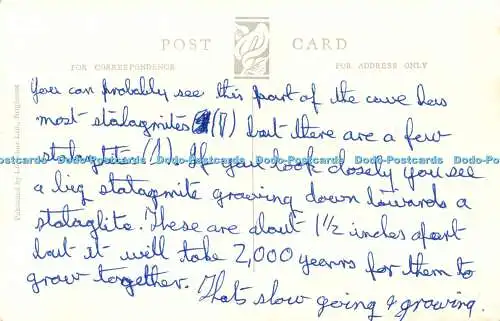 POST CARD
FOR CORRESPONDENCE FOR ADDRESS ONLY
You can probably see this part of the cave has
most stalagmites (T) but there are a few
Dodo-Postcards Dodo-Postcards Dodo-Postcards Dodo-Postcards
(1). If you look closely you see
a big statagmite growing down towards a
stataglite. These are about 1½ inches apart
but it will take 2,000 yearrs for them to
grow together. That's slow going & growing
Published by Ltd., Brighton